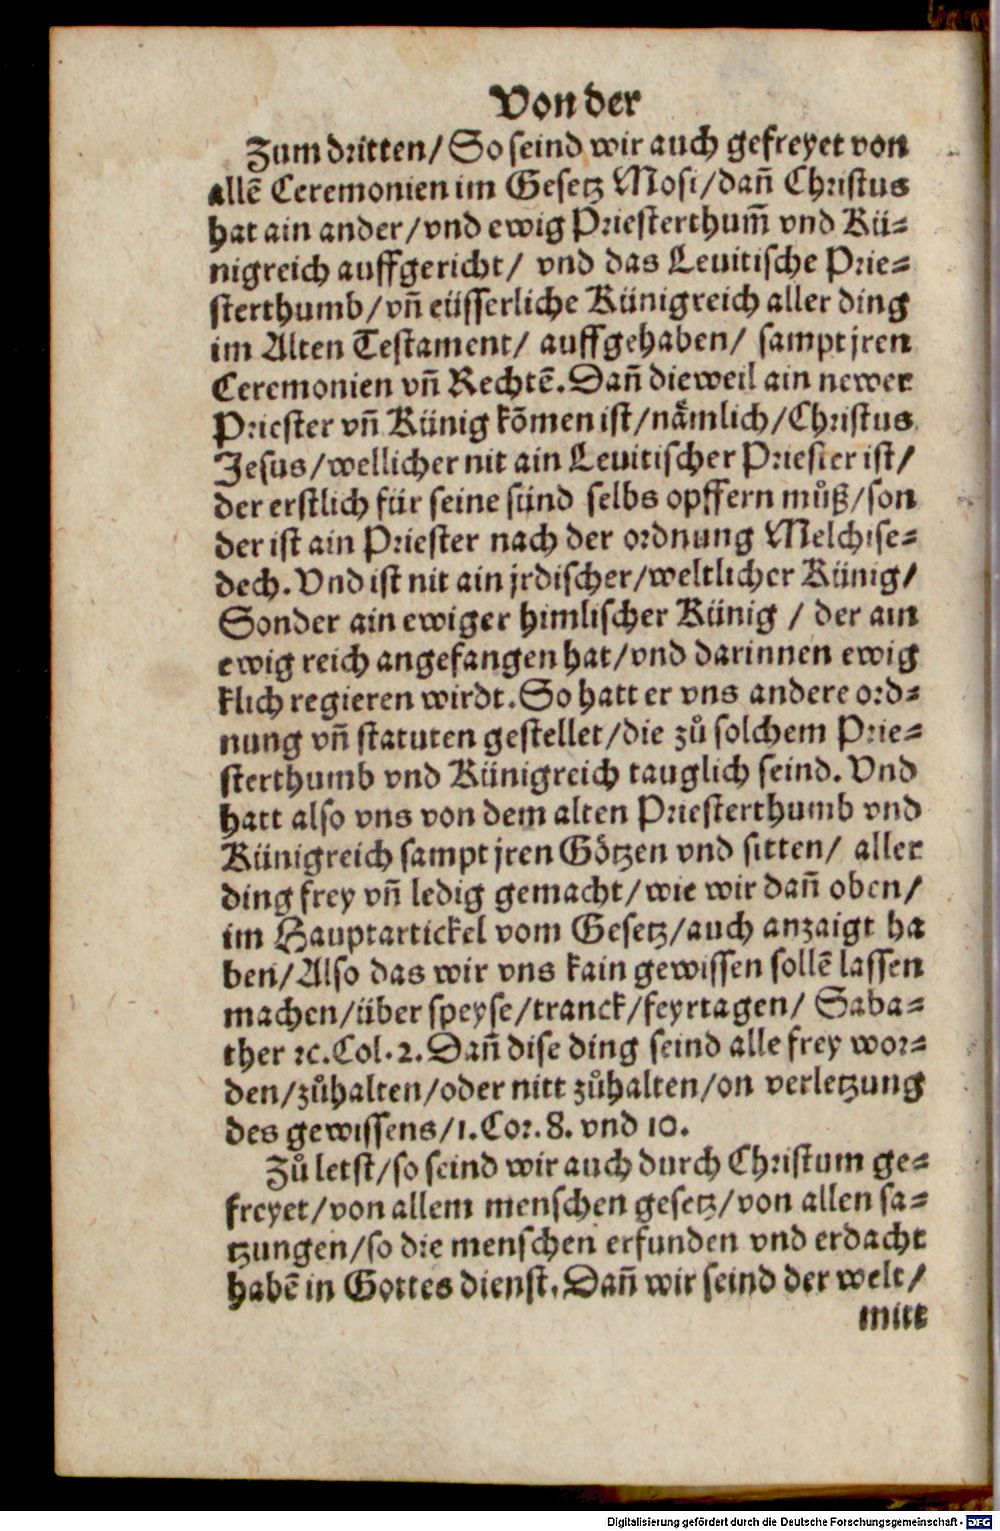 Von der
Zum dritten/ So seind wir auch gefreyet von
allē Ceremonien im Gesetz Mosi/dañ Christus
hat ain ander/vnd ewig Priesterthum̄ vnd Kü⸗
nigreich auffgericht/ vnd das Leuitische Prie⸗
sterthumb/vñ eüsserliche Künigreich aller ding
im Alten Testament/ auffgehaben/ sampt jren
Ceremonien vñ Rechtē. Dañ dieweil ain newer
Priester vñ Künig kōmen ist/nämlich/Christus
Jesus/wellicher nit ain Leuitischer Priester ist/
der erstlich für seine sünd selbs opffern můß/son
der ist ain Priester nach der ordnung Melchise⸗
dech. Vnd ist nit ain jrdischer/weltlicher Künig/
Sonder ain ewiger himlischer Künig / der ain
ewig reich angefangen hat/vnd darinnen ewig
klich regieren wirdt. So hatt er vns andere ord⸗
nung vñ statuten gestellet/die zů solchem Prie⸗
sterthumb vnd Künigreich tauglich seind. Vnd
hatt also vns von dem alten Priesterthumb vnd
Künigreich sampt jren Götzen vnd sitten/ aller
ding frey vñ ledig gemacht/wie wir dañ oben/
im Hauptartickel vom Gesetz/auch anzaigt ha
ben/Also das wir vns kain gewissen sollē lassen
machen/über speyse/tranck/feyrtagen/ Saba⸗
ther ꝛc. Col. 2. Dañ dise ding seind alle frey wor⸗
den/zůhalten/oder nitt zůhalten/on verletzung
des gewissens/1. Cor. 8. vnd 10.
Zů letst/so seind wir auch durch Christum ge⸗
freyet/von allem menschen gesetz/von allen sa⸗
tzungen/so die menschen erfunden vnd erdacht
habē in Gottes dienst. Dañ wir seind der welt/
mitt
Digitalisierung gefördert durch die Deutsche Forschungsgemeinschaft - DFG